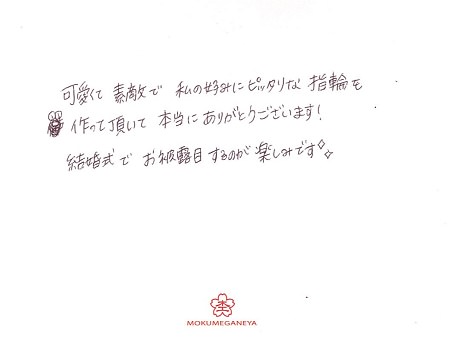 可愛くて 素敵で 私の好みにピッタリな 指輪を
作って頂いて 本当に ありがとうございます!
結婚式で お披露目するのが 楽しみです
MOKUMEGANEYA